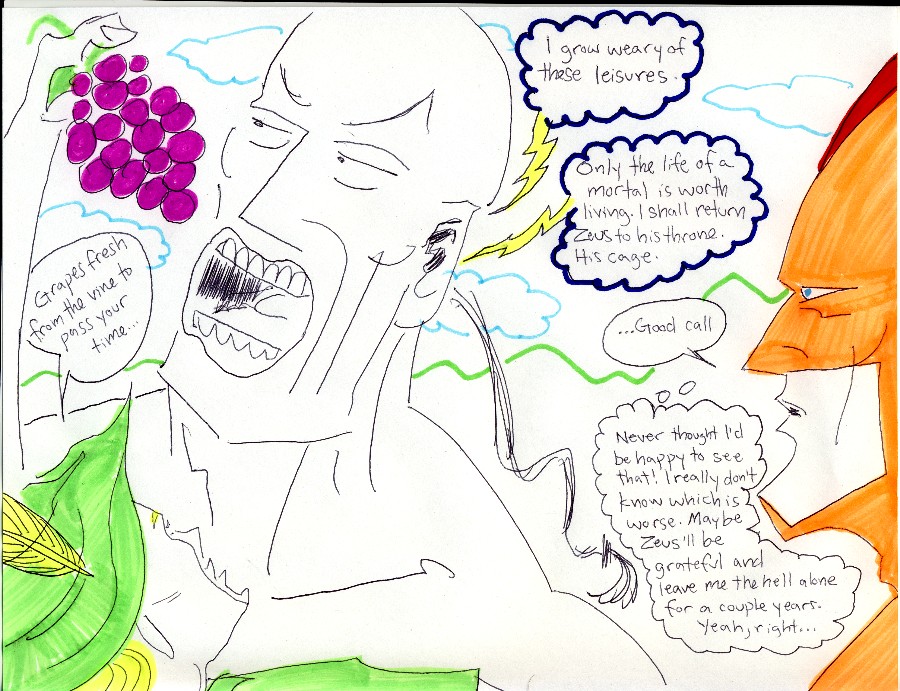 Grapes fresh
from the vine to
pass your
time...
I grow weary of
these leisures.
Only the life of a
mortal is worth
living. I shall return
Zeus to his throne.
His cage.
...Good call
Never thought I'd
be happy to see
that! I really don't
know which is
worse. Maybe
Zeus'll be
grateful and
leave me the hell alone
for a couple years.
Yeah, right...